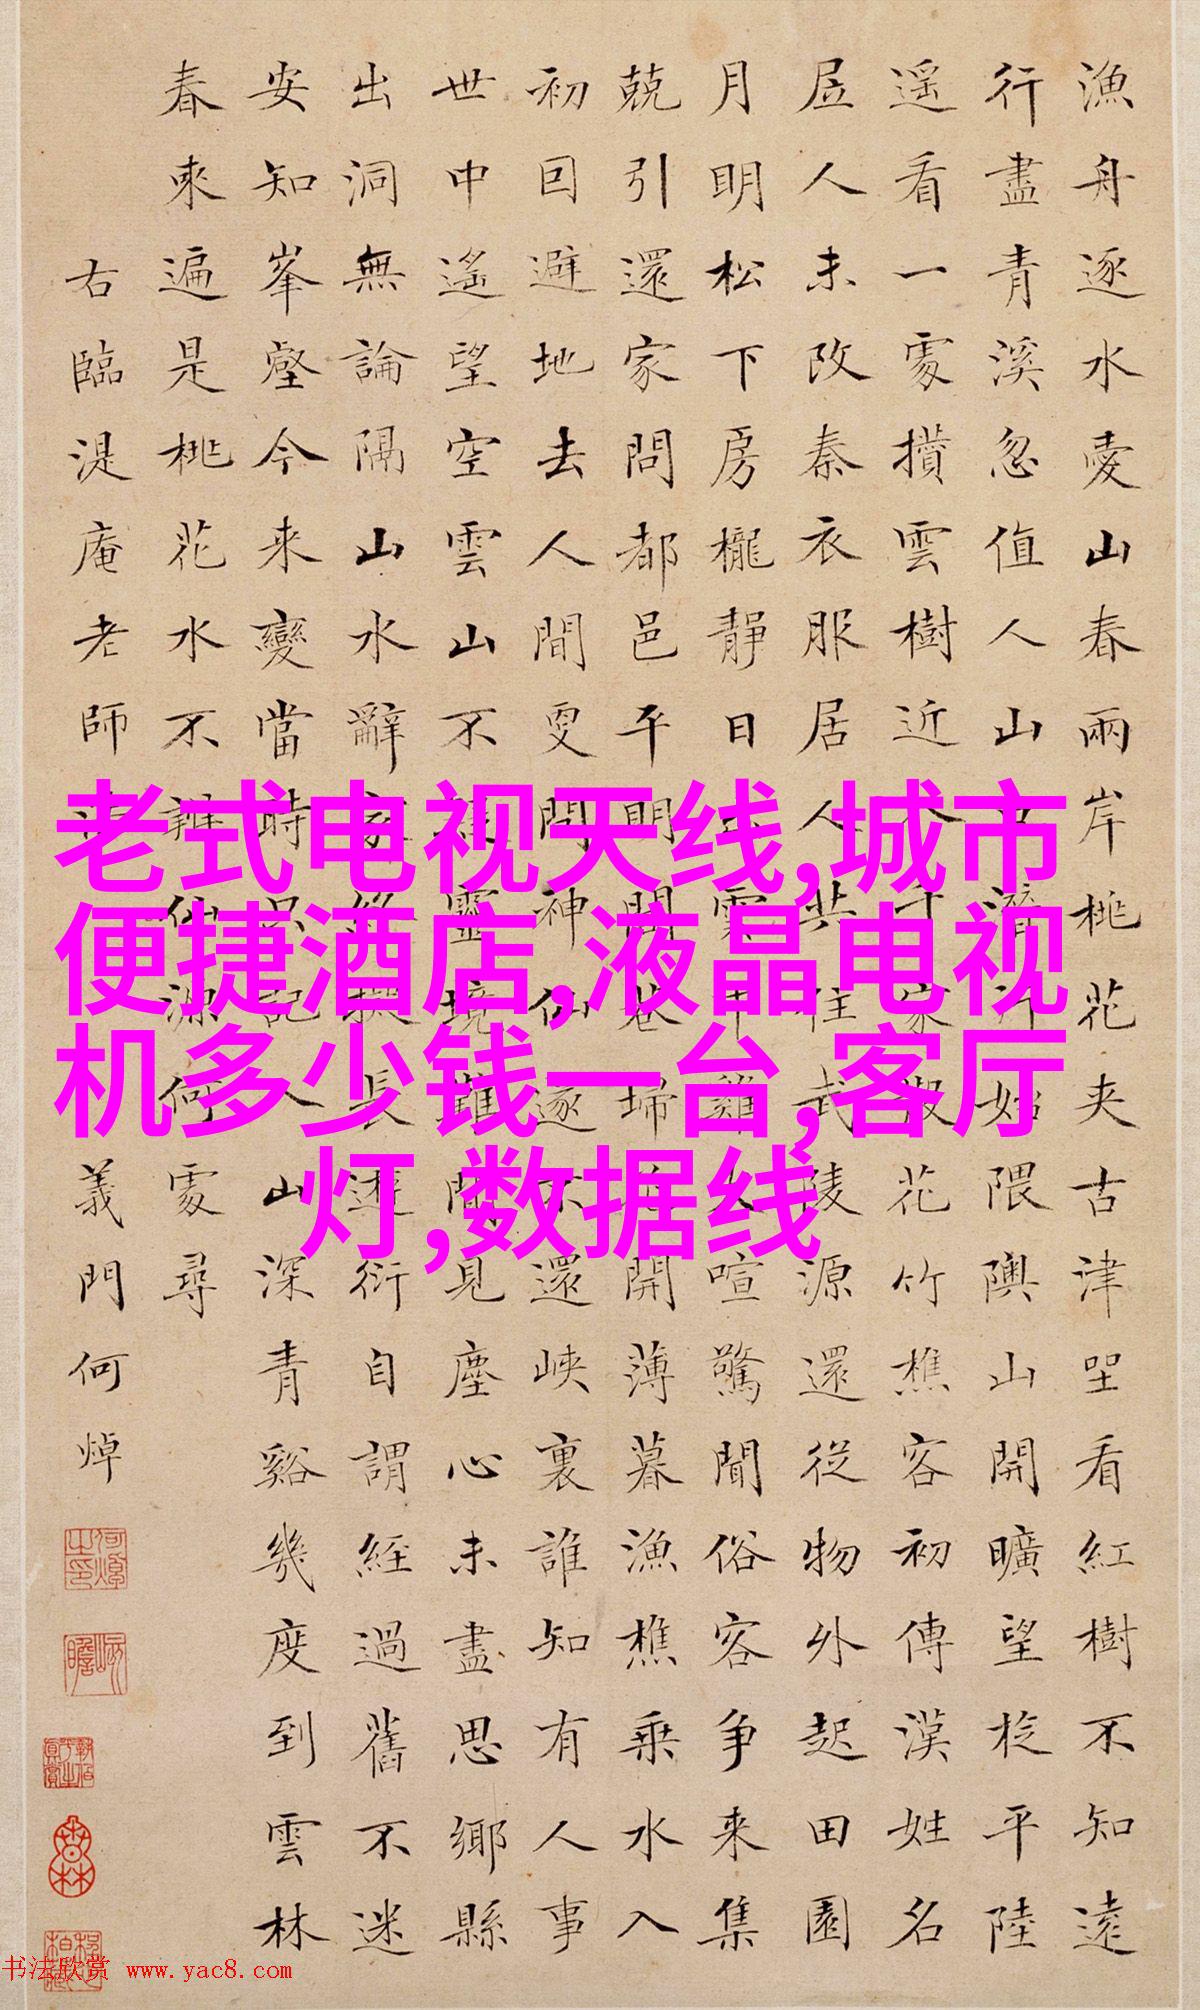 漁舟逐水愛山春兩岸桃花夾古津坐看紅樹不知遠
行盡青溪忽值人山口潛行始隈隩山開曠望旋平陸
遥看一處攢雲樹近入千家散花竹樵客初傳漢姓名
居人未改秦衣服居人共住武陵源還從物外起田園
月明松下房櫳靜日出雲中雞犬喧驚聞俗客争来集
兢引還家問都邑平明閭巷埽花開薄暮漁樵乗水入
初因避地去人間更問神仙遂不還峽裏誰知有人事
世中遙望空雲山不疑靈境難聞見塵心未盡思鄉縣
出洞無論隔山水辭家終擬長遊衍自謂經過舊不迷
安知峯壑今来變當時只記入山深青谿幾度到雲林
春來遍是桃花水不辨仙源何處尋
右臨湜庵老師
義門何焯
老式电视天线,城市
便捷酒店,液晶电视
机多少钱一台,客厅
灯,数据线
书法欣赏 www.yac8.com